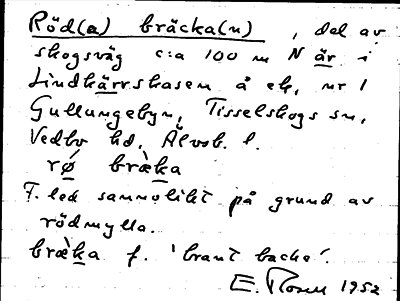 Röd(a) bräcka(n), del av
skogsväg c:a 100 m N är i
Lindkärrskasen å ek. nr 1
Gullungebyn, Tisselskogs sn,
Vedbo hd, Älvsb. l.
rǿ bræ̀ka
F. led sannolikt på grund av
rödmylla.
bræ̀ka f. 'brant backe'.
E. Rosen 1952